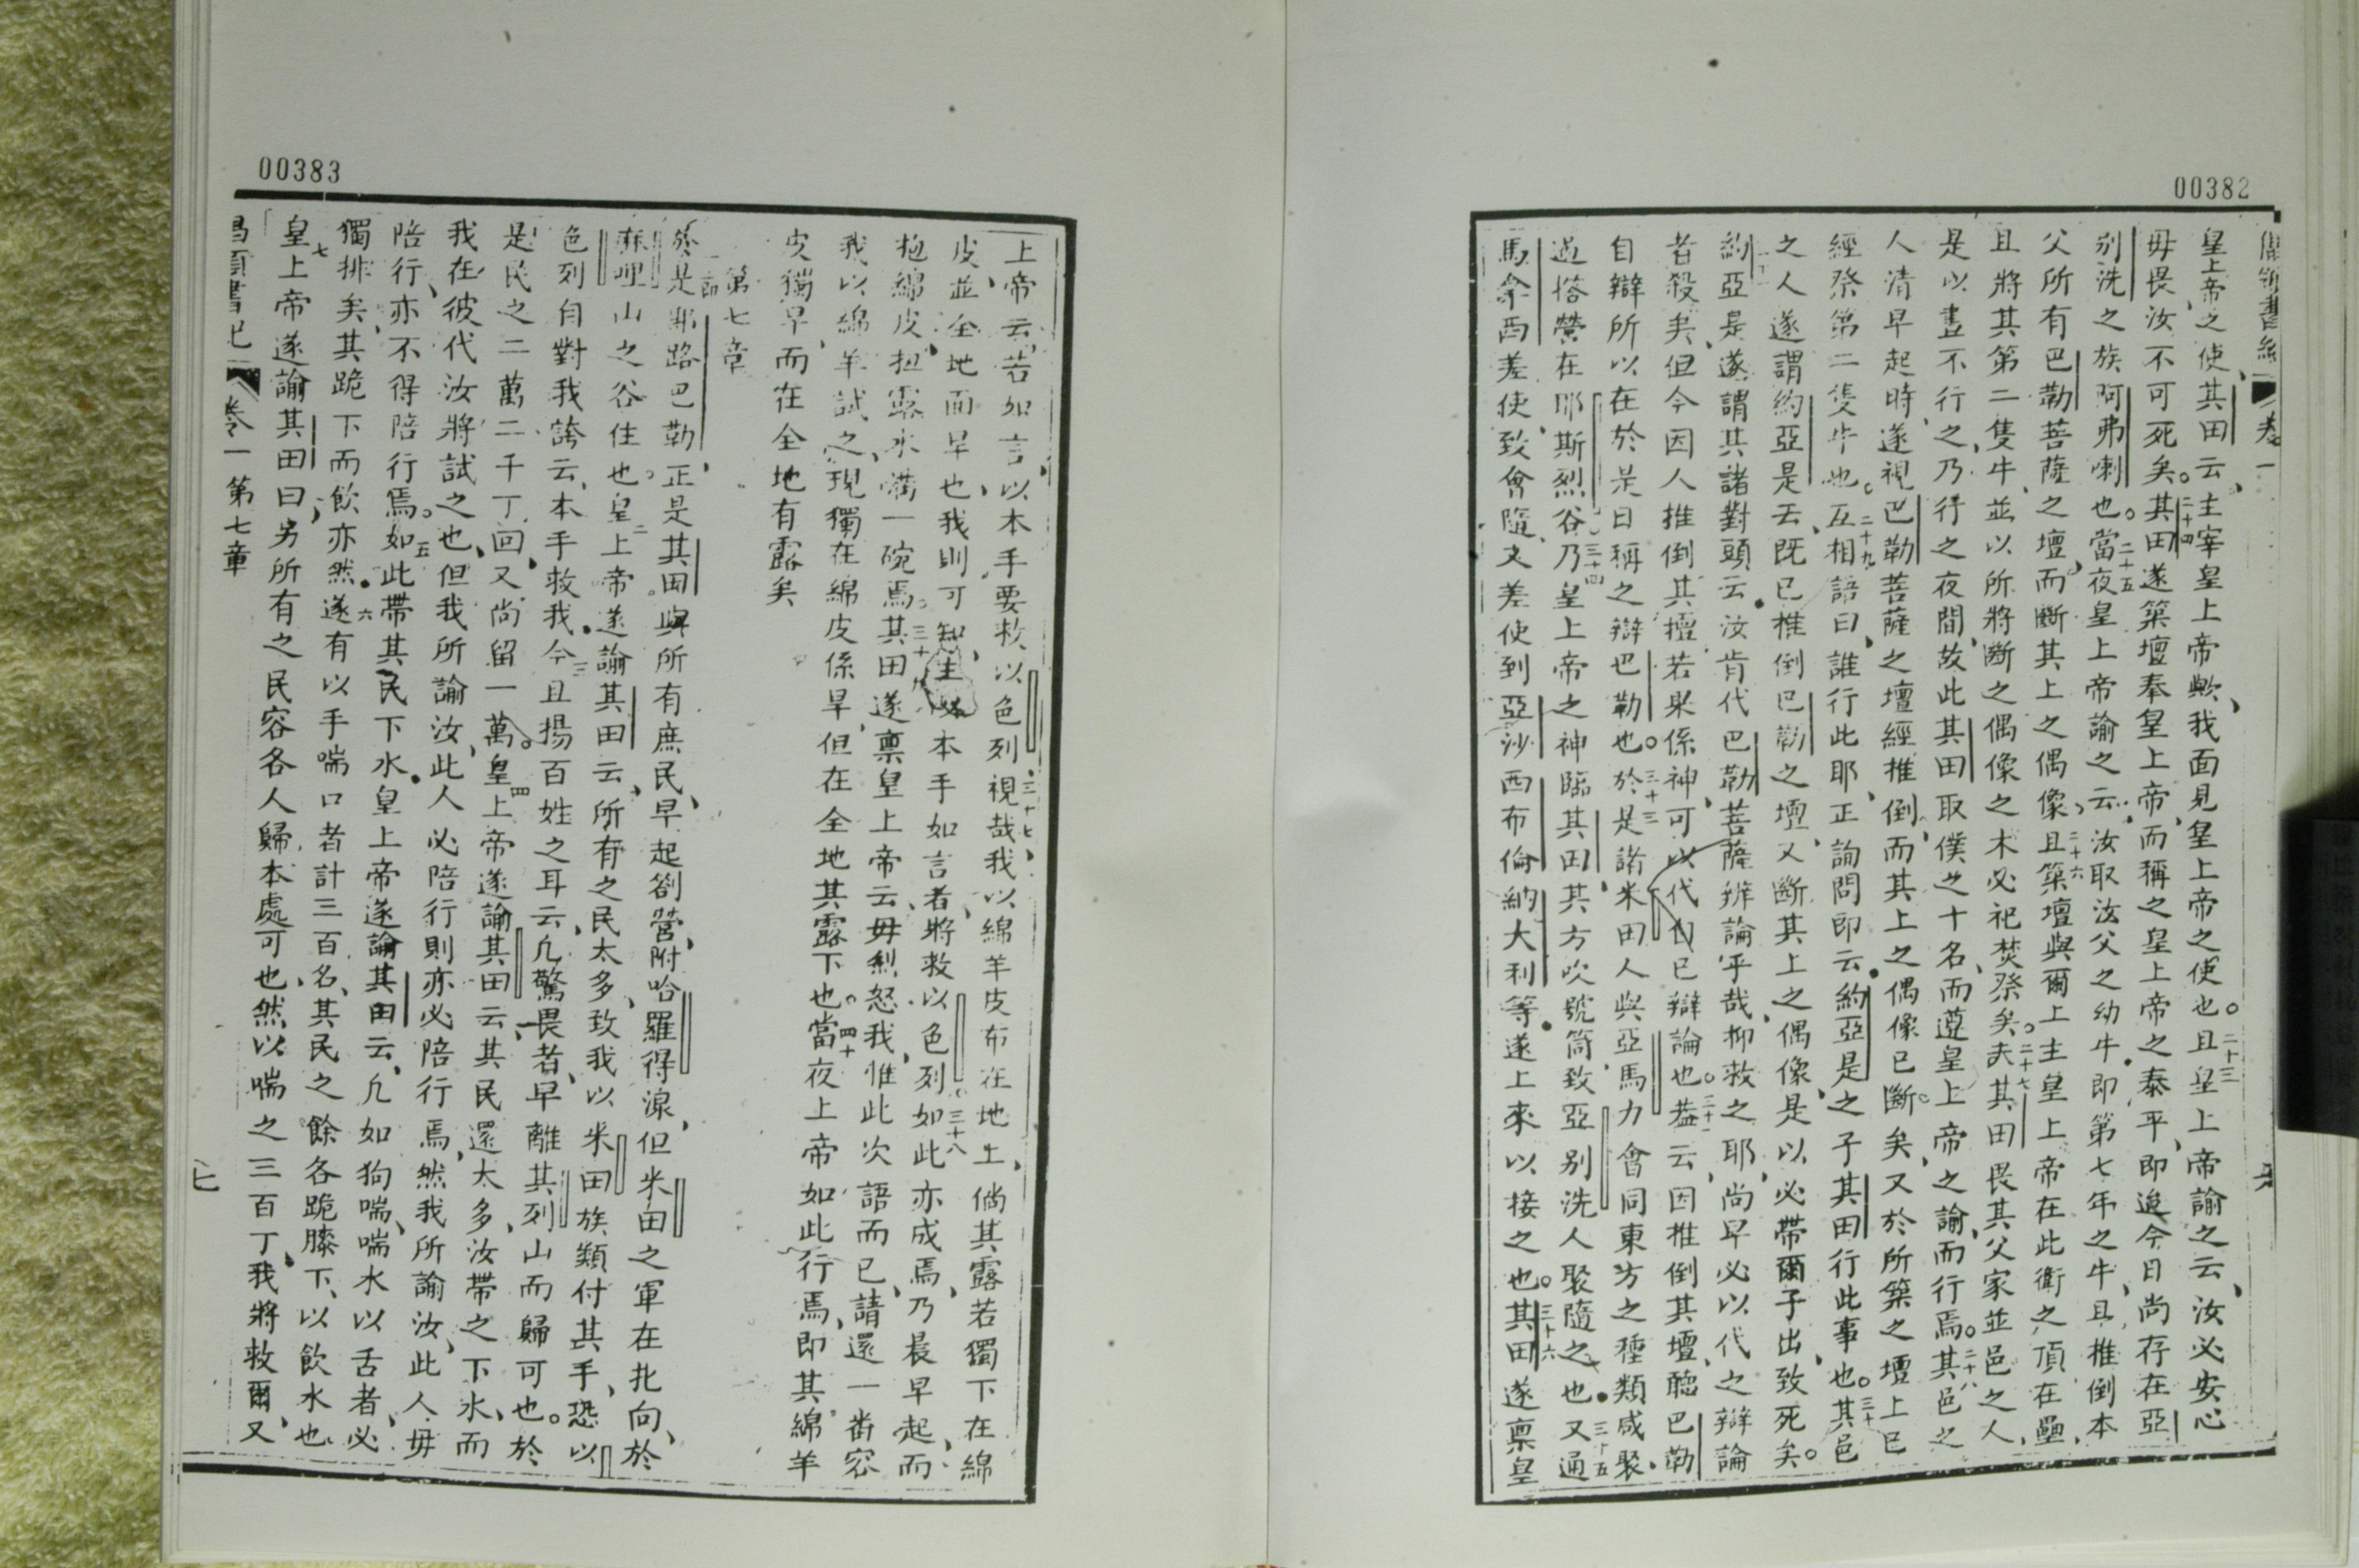 00382
皇上帝之使、其田云、主宰皇上帝歟、我面見皇上帝之使也。二十三且皇上帝諭之云、汝必安心
毋畏、汝不可死矣。二十四其田遂築壇奉皇上帝、而稱之皇上帝之泰平、即迨今日尚存在亞
别洗之族阿弗喇也。二十五當夜皇上帝諭之云、汝取汝父之幼牛、即第七年之牛、且推倒本
父所有巴勒菩薩之壇、而斷其上之偶像、二十六且築壇與爾上主皇上帝在此衛之頂在壘、
且將其第二隻牛、並以所將斷之偶像之木、必祀焚祭矣。二十七夫其田畏其父家並邑之人、
是以晝不行之、乃行之夜間、故此其田取僕之十名、而遵皇上帝之諭、而行焉。二十八其邑之
人清早起時、遂視巴勒菩薩之壇經推倒、而其上之偶像已斷矣、又於所築之壇上已
經祭第二隻牛也。二十九互相語曰、誰行此耶、正詢問即云、約亞是之子其田行此事也。三十其邑
之人遂謂約亞是云、既已推倒巴勒之壇、又斷其上之偶像、是以必帶爾子出致死矣。
約亞是遂謂其諸對頭云、汝肯代巴勒菩薩辨論乎哉、抑救之耶、尚早必以代之辯論
者殺矣、但今因人推倒其壇、若果係神、可以代自已辯論也。三十二蓋云、因推倒其壇、聽巴勒
自辯、所以在於是日稱之辯巴勒也。三十三於是諸米田人與亞馬力會同東方之種類咸聚、
過搭營在耶斯烈谷。三十四乃皇上帝之神臨其田、其方吹號筒、致亞别洗人聚隨之也。三十五又通
馬拿西差使、致會隨、又差使到亞沙西布倫納大利等、遂上來以接之也。三十六其田遂禀皇
00383
上帝云、若如言、以本手要救以色列、三十七視哉、我以綿羊皮布在地土、倘其露若獨下在綿
皮、並全地面旱也、我則可知主以本手如言者、將救以色列。三十八如此亦成焉、乃晨早起、而
拖綿皮、扭露水滿一碗焉。三十九其田遂禀皇上帝云、毋烈怒我、惟此次語而已、請還一番容
我以綿羊試之、現獨在綿皮係旱、但在全地其露下也。四十當夜上帝如此行焉、即其綿羊
皮獨旱、而在全地有露矣
第七章
一節於是耶路巴勒、正是其田。與所有庶民、早起劄營、附哈羅得濠、但米田之軍在北向、於
麻哩山之谷住也。二皇上帝遂諭其田云、所有之民太多、致我以米田族類付其手、恐以
色列自對我誇云、本手救我、三今且揚百姓之耳云、凡驚畏者、早離其列山而歸可也。於
是民之二萬二千丁回、又尚留一萬。四皇上帝遂諭其田云、其民還太多、汝帶之下水、而
我在彼代汝將試之也、但我所諭汝、此人必陪行、則亦必陪行焉、然我所諭汝、此人毋
陪行、亦不得陪行焉。五如此帶其民下水、皇上帝遂諭其田云、凡如狗喘、喘水以舌者、必
獨排矣、其跪下而飲亦然。六遂有以手喘口者計三百名、其民之餘各跪膝下、以飲水也
七皇上帝遂諭其田曰、另所有之民容各人歸本處可也、然以喘之三百丁、我將救爾、又
卷一 第七章
七